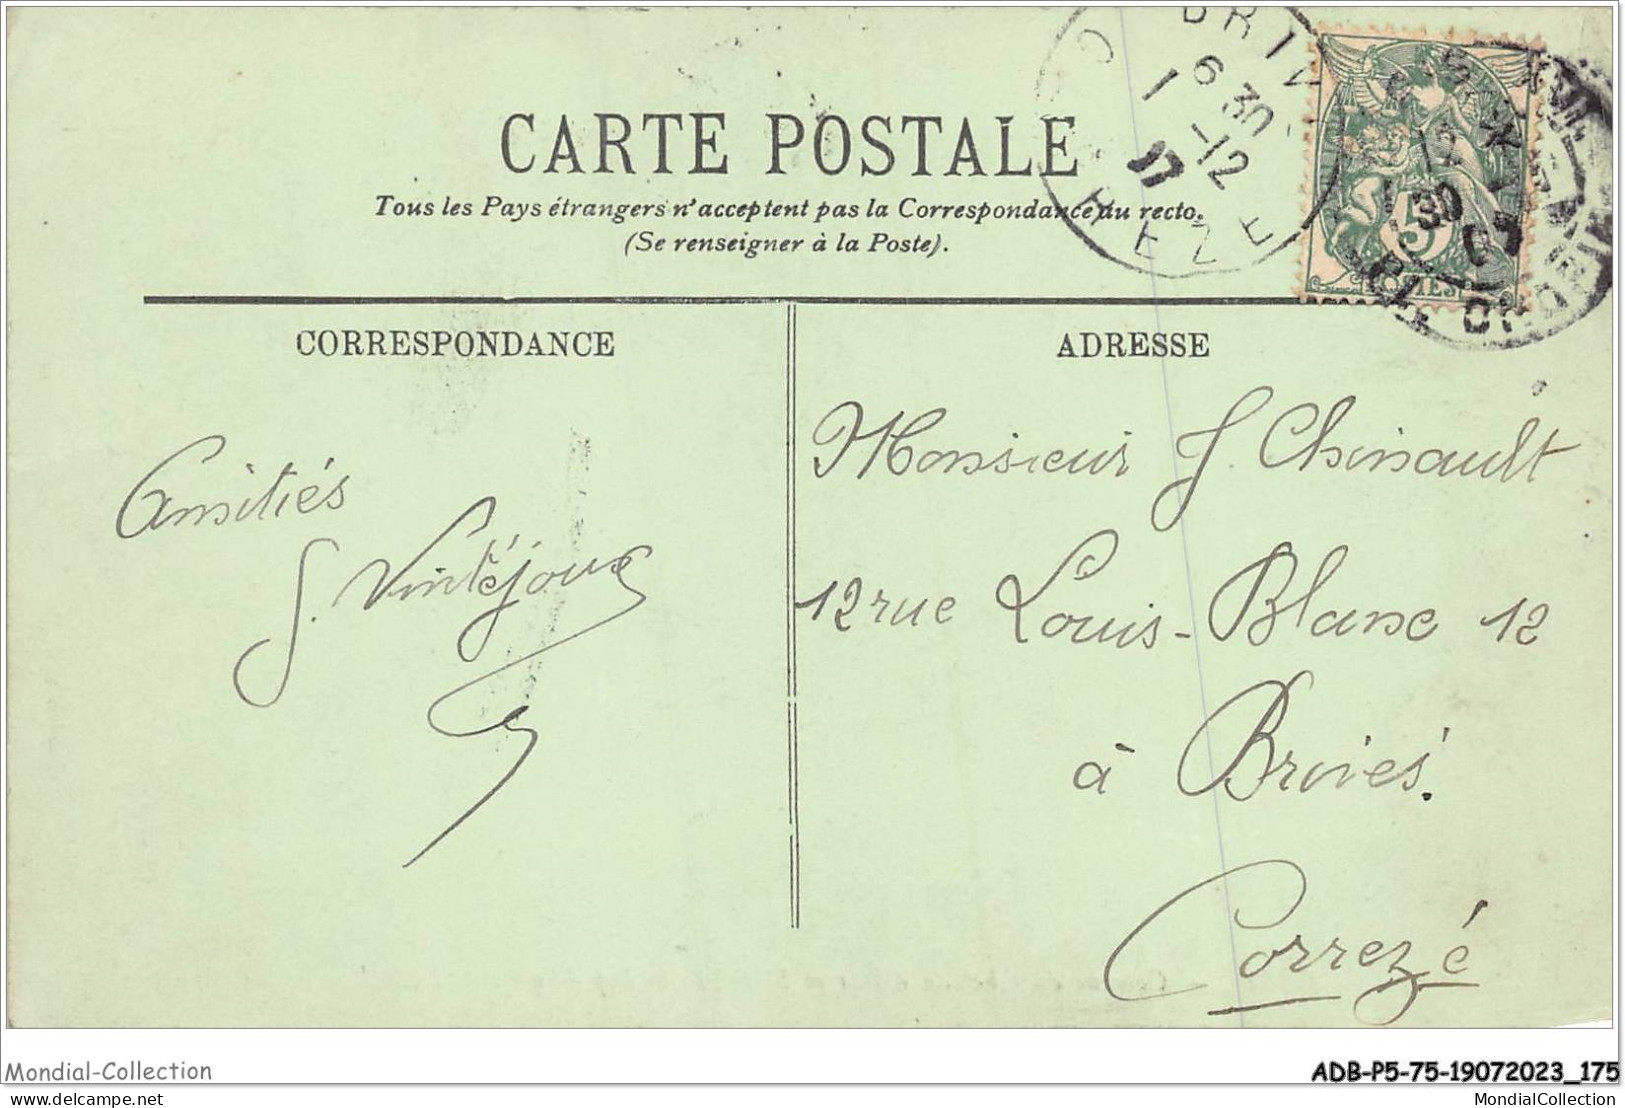 BRIV
6 30
1 -12
07
REZE
5
30
07
CARTE POSTALE
Tous les Pays étrangers n'acceptent pas la Correspondance au recto.
(Se renseigner à la Poste).
CORRESPONDANCE
ADRESSE
Amitiés
J. Vintéjoux
Monsieur J. Chinault
12 rue Louis-Blanc 12
à Brives.
Corrèze
Mondial-Collection
ADB-P5-75-19072023_175
delcampe.net
MondialCollection